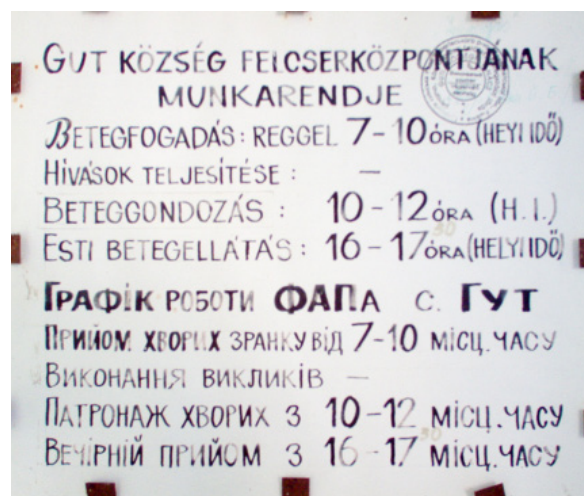 GUT KÖZSÉG FELCSERKÖZPONTJÁNAK
MUNKARENDJE
BETEGFOGADÁS: REGGEL 7-10 ÓRA (HEYI IDŐ)
HÍVÁSOK TELJESÍTÉSE: —
BETEGGONDOZÁS: 10-12 ÓRA (H. I.)
ESTI BETEGELLÁTÁS: 16-17 30 ÓRA (HELYI IDŐ)
ГРАФІК РОБОТИ ФАПа с. ГУТ
ПРИЙОМ ХВОРИХ ЗРАНКУ ВІД 7-10 МІСЦ. ЧАСУ
ВИКОНАННЯ ВИКЛИКІВ —
ПАТРОНАЖ ХВОРИХ З 10-12 МІСЦ. ЧАСУ
ВЕЧІРНІЙ ПРИЙОМ З 16-17 30 МІСЦ. ЧАСУ